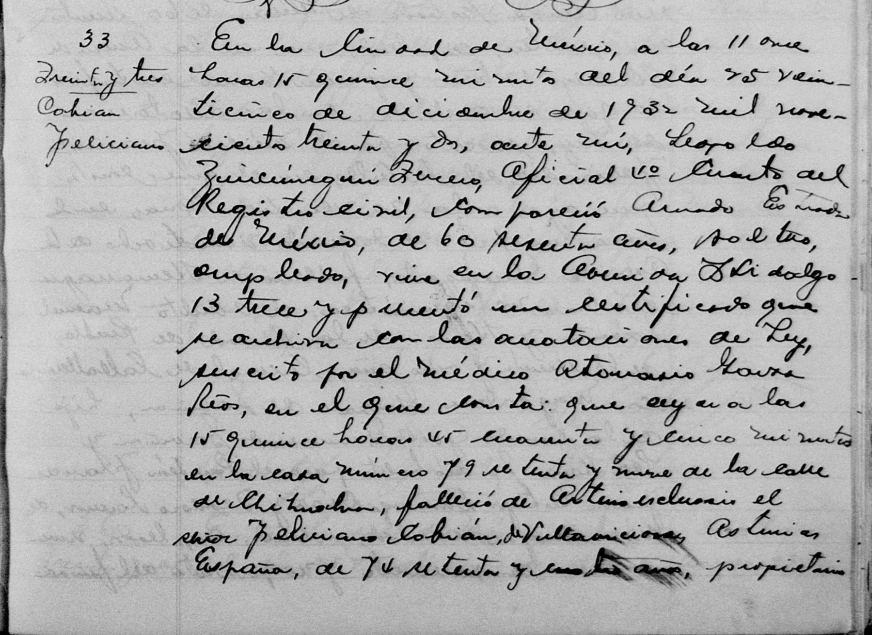 33
Treinta y tres
Cobian
Feliciano
En la Ciudad de México, a las 11 once
horas 15 quince minutos del día 25 vein-
ticinco de diciembre de 1932 mil nove-
cientos treinta y dos, ante mí, Leopoldo
Oficial 4o Cuarto del
Registro civil, compareció Amado Estrada
de México, de 60 sesenta años, soltero,
empleado, vive en la Avenida Hidalgo
13 trece y presentó un certificado que
se archiva con las anotaciones de Ley,
suscrito por el médico Atanasio Garza
Ríos, en el que consta: que ayer a las
15 quince horas 45 cuarenta y cinco minutos
en la casa número 79 setenta y nueve de la calle
de Chihuahua, falleció de Arterioesclerosis el
señor Feliciano Cobián, de Asturias
España, de 74 setenta y cuatro años, propietario